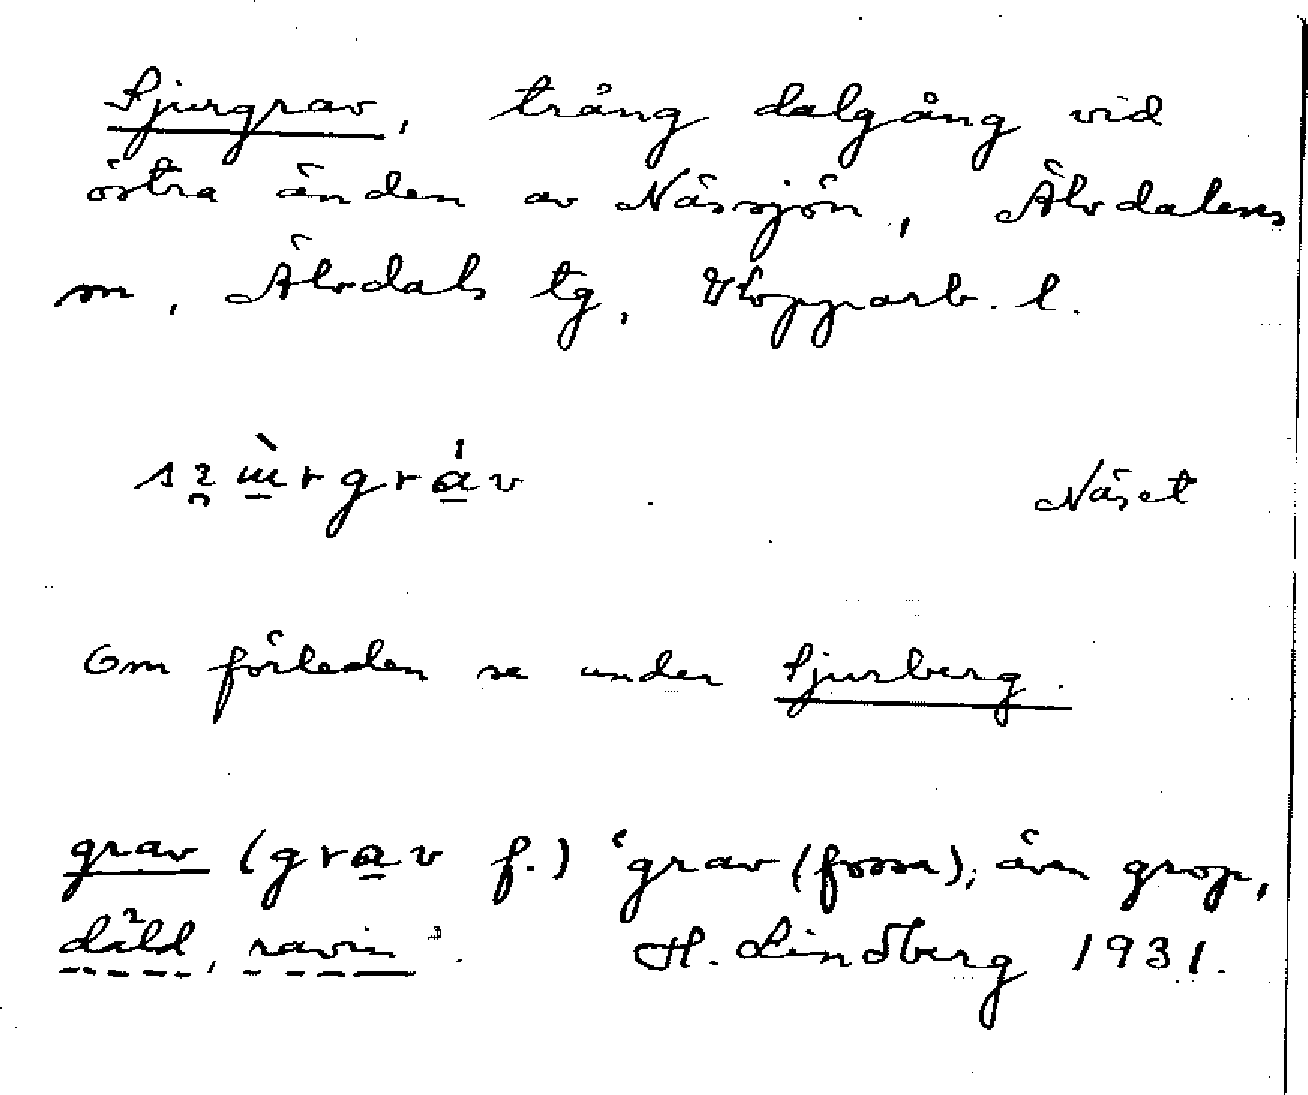 Sjurgrav, trång dalgång vid
östra änden av Nässjön, Älvdalens
sn, Älvdals tg, Kopparb. l.
Näset
Om förleden se under Sjurberg.
grav (grav f.) 'grav (fossa), även grop,
däld, ravin'. H. Lindberg 1931.